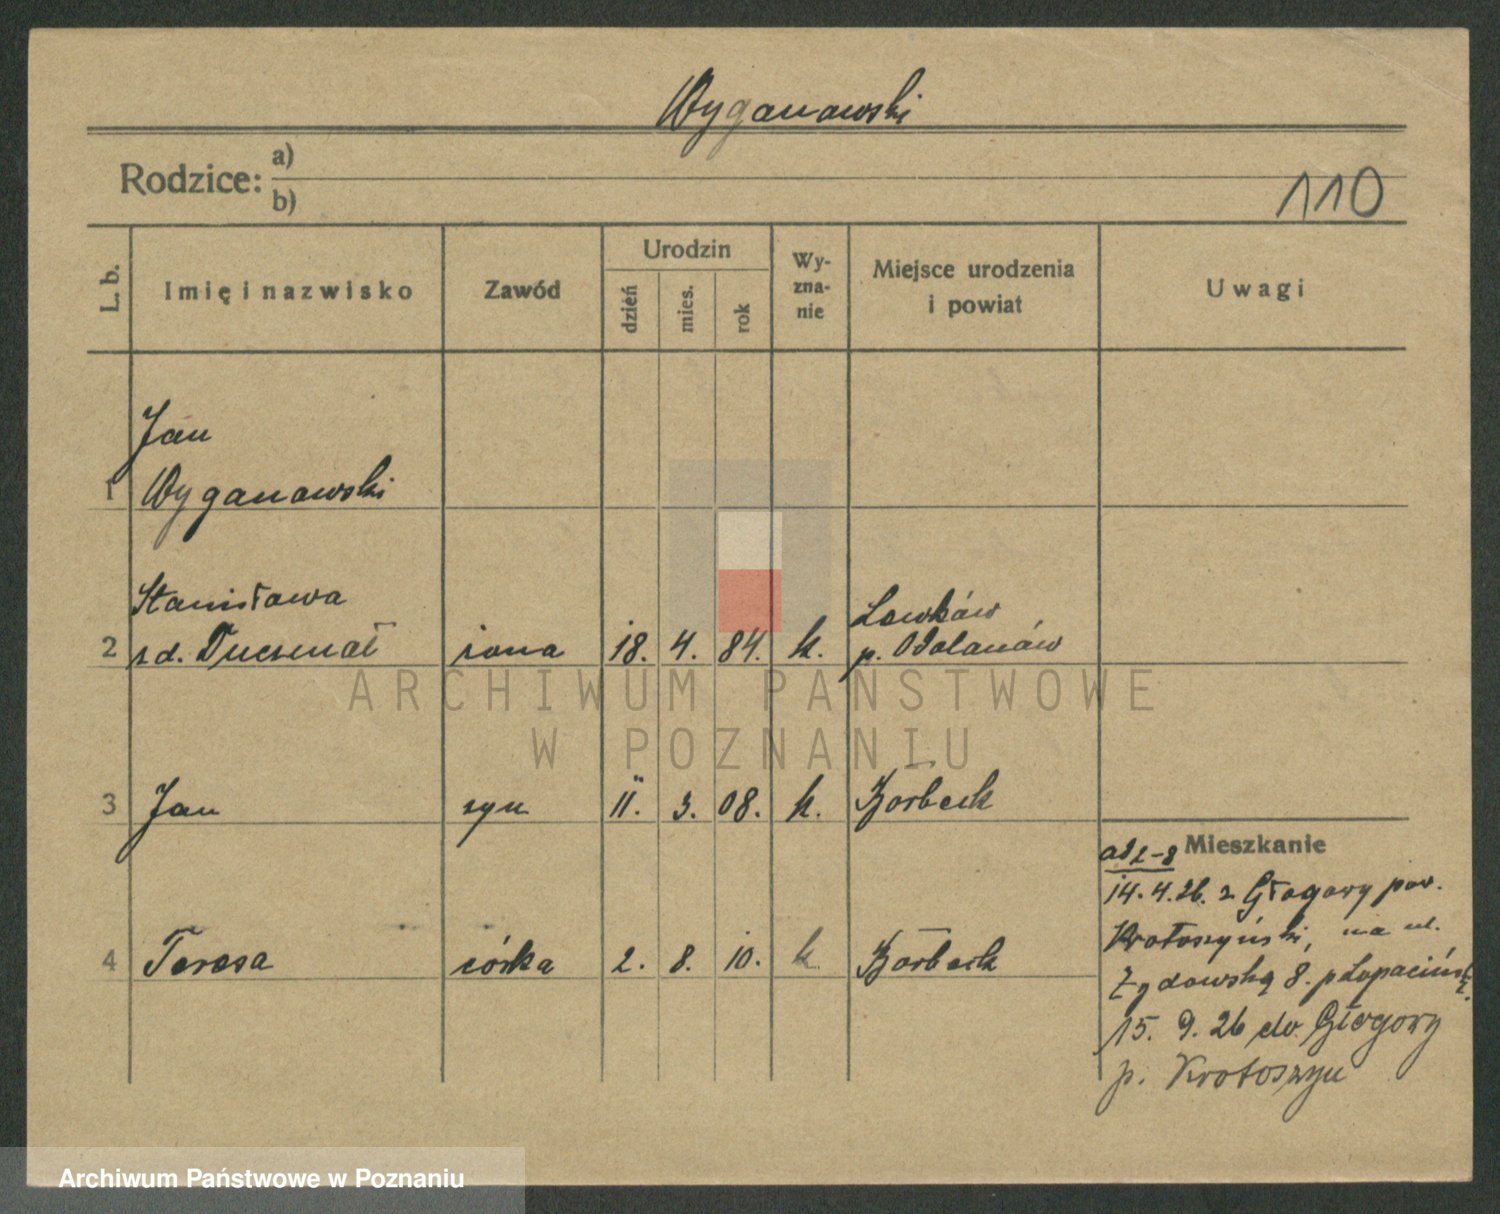 Wyganowski
Rodzice: a)
b)
110
L. b. Imię i nazwisko Zawód Urodzin dzień mies. rok Wy-zna-nie Miejsce urodzenia i powiat Uwagi
Jan
1 Wyganowski
Stanisława
2 z d. żona 18. 4. 84. k. p. Odolanów
3 Jan syn 11. 3. 08. k. Borbeck
Mieszkanie
ad 2-8
14.4.26. z Głogowy pow.
Krotoszyński, na ul.
4 Teresa córka 2. 8. 10. k. Borbeck
Żydowską 8.
15. 9. 26 do Głogowy
p. Krotoszyn
ARCHIWUM PAŃSTWOWE
W POZNANIU
Archiwum Państwowe w Poznaniu